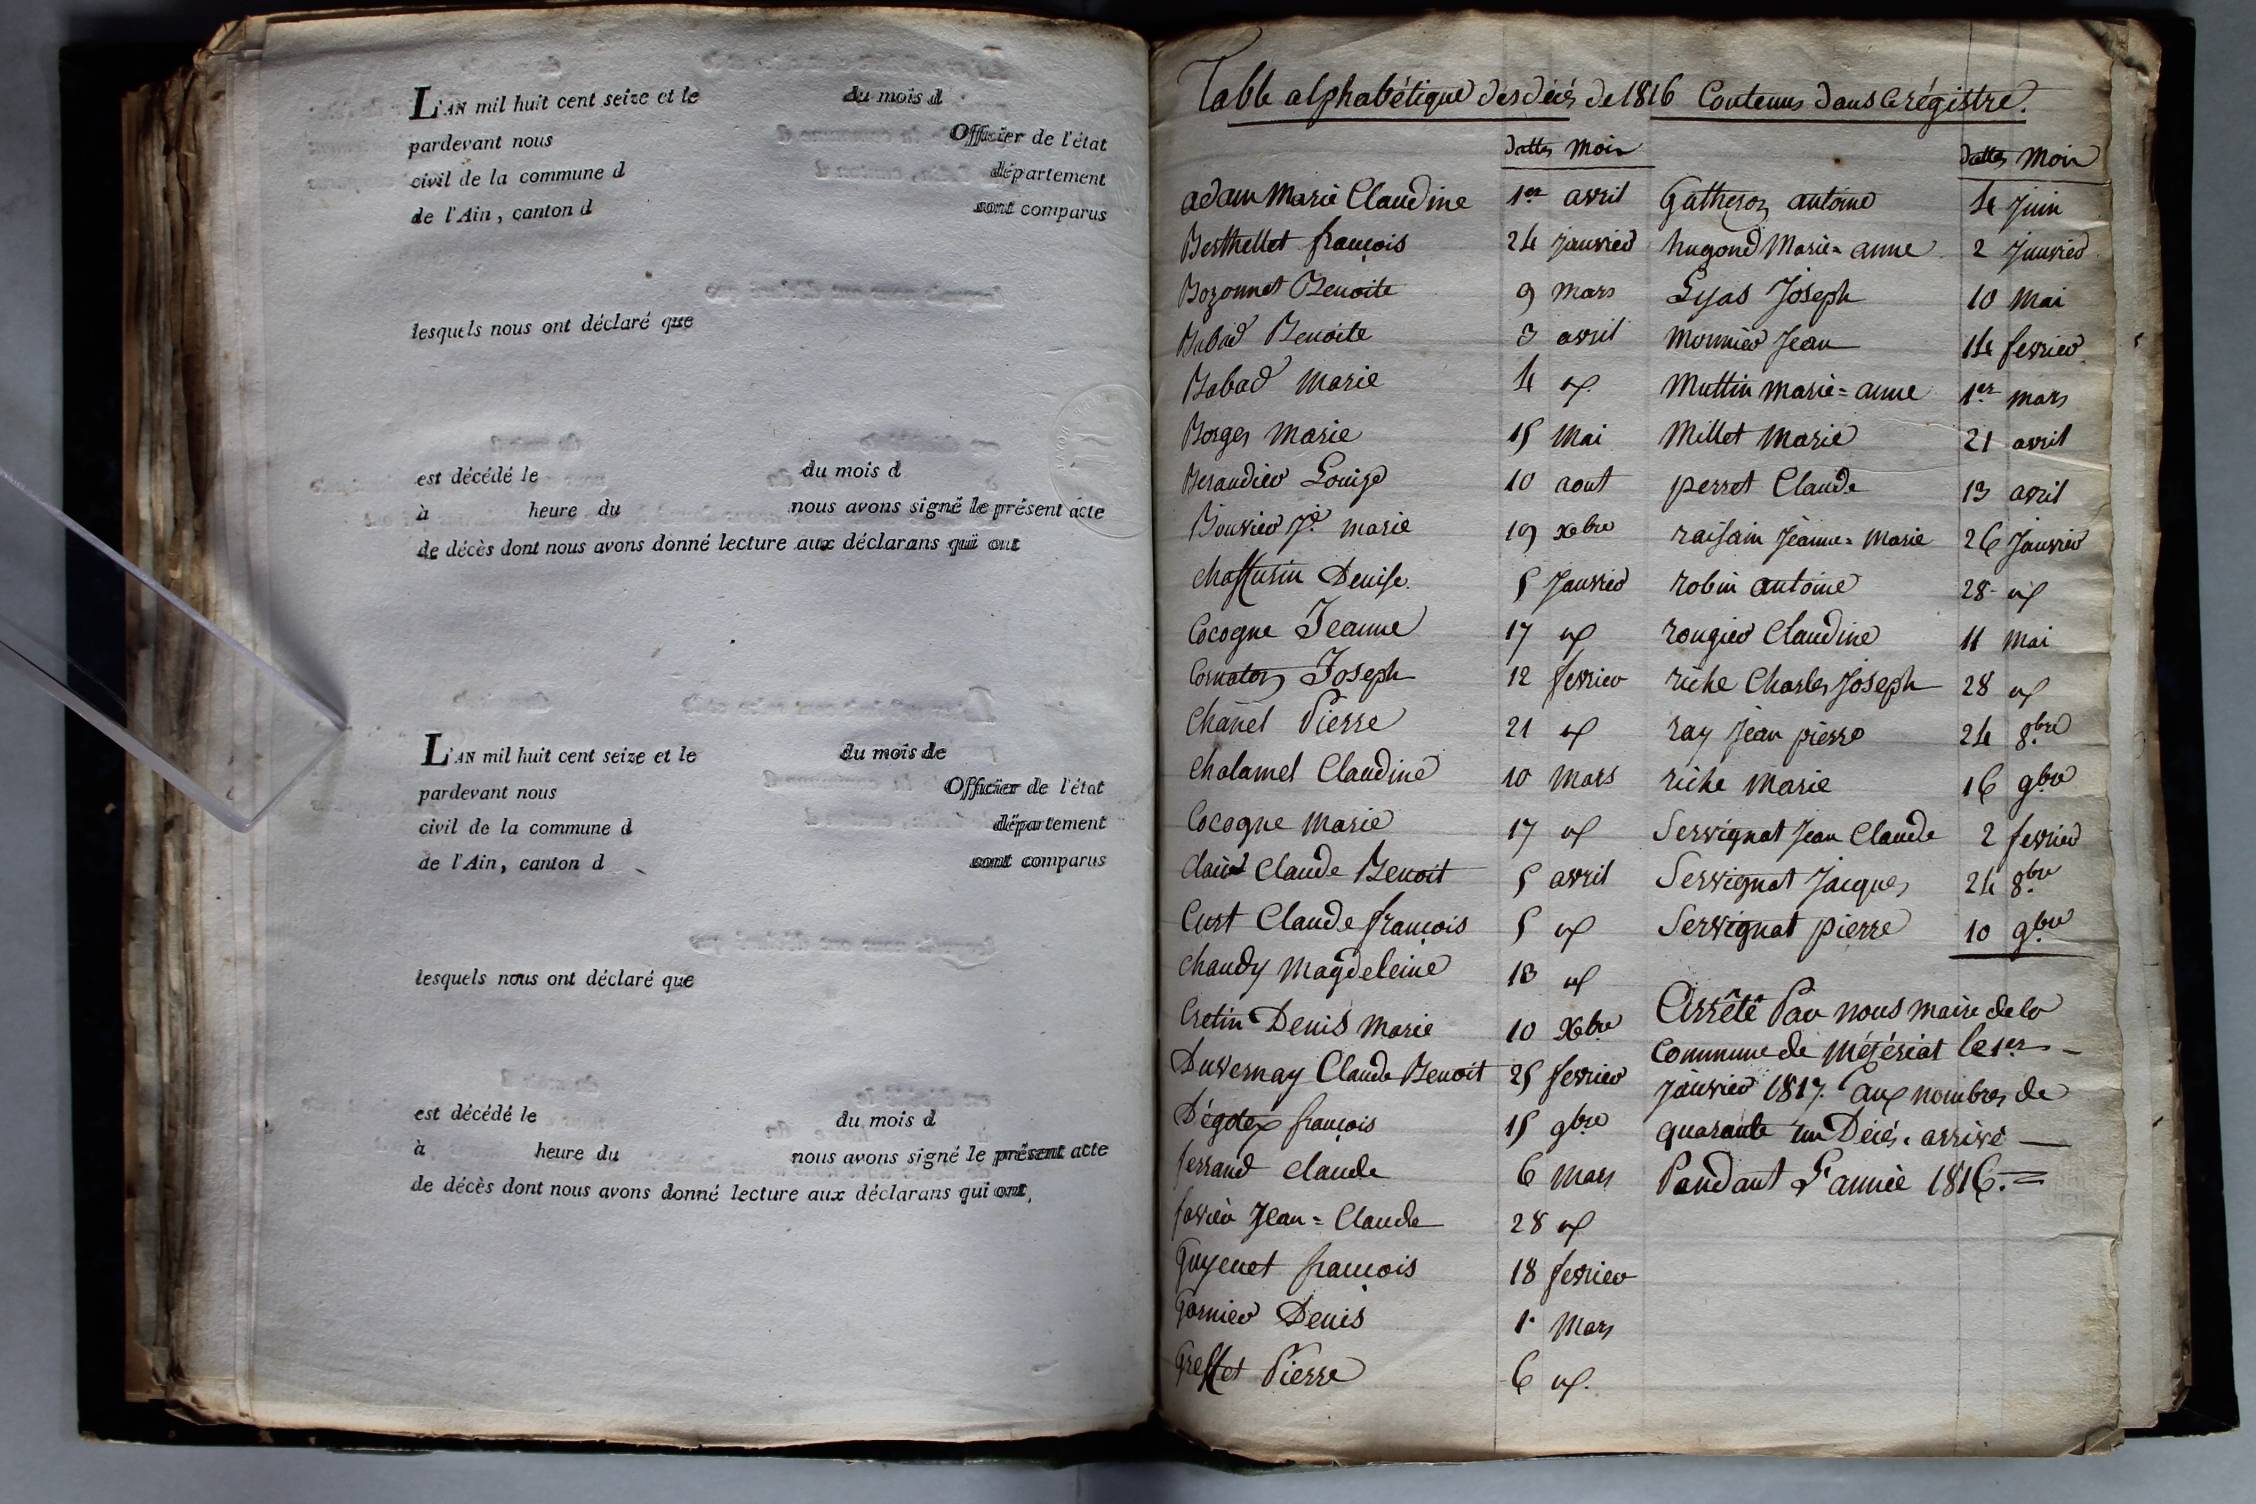 L'AN mil huit cent seize et le du mois d
pardevant nous Officier de l'état
civil de la commune d département
de l'Ain, canton d sont comparus
lesquels nous ont déclaré que
est décédé le du mois d
à heure du nous avons signé le présent acte
de décès dont nous avons donné lecture aux déclarans qui ont
L'AN mil huit cent seize et le du mois de
pardevant nous Officier de l'état
civil de la commune d département
de l'Ain, canton d sont comparus
lesquels nous ont déclaré que
est décédé le du mois d
à heure du nous avons signé le présent acte
de décès dont nous avons donné lecture aux déclarans qui ont,
Table alphabétique des décés de 1816 Contenus dans le régistre.
dattes mois
adam Marie Claudine 1er avril
Berthellet françois 24 janvier
Bozonnet Benoite 9 mars
Babad Benoite 3 avril
Babad Marie 4 
Borges Marie 15 Mai
Beraudier Louise 10 aout
Bouvier Je. marie 19 xbre
chassurin Denise 5 Janvier
Cocogne Jeanne 17
Cornaton Joseph 12 fevrier
Chanel Pierre 21
Chalamel Claudine 10 Mars
Cocogne Marie 17
Claude Benoit 5 avril
Curt Claude françois 5
Chaudy Magdeleine 13
Cretin Denis Marie 10 Xbre
Duvernay Claude Benoit 25 fevrier
Dégotex françois 15 9bre
ferrand Claude 6 Mars
favier Jean=Claude 28
Guyenet françois 18 fevrier
Garnier Denis 1. Mars
Gresset Pierre 6
dattes Mois
Gatheron antoine 4 Juin
hugond Marie=anne 2 Janvier
Lyas Joseph 10 Mai
Monnier Jean 14 fevrier
Muttin Marie=anne 1er mars
Millet Marie 21 avril
perret Claude 13 avril
raisain Jeanne=Marie 26 Janvier
robin antoine 28
rougier Claudine 11 Mai
riche Charles Joseph 28
ray Jean pierre 24 8bre
riche Marie 16 9bre
Servignat Jean Claude 2 fevrier
Servignat Jacques 24 8bre
Servignat pierre 10 9bre
Arrêté Par nous maire de la
Commune de Mézériat le 1er
Janvier 1817. Aux nombres de
quarante un Décés. arrivé
Pendant L'année 1816.